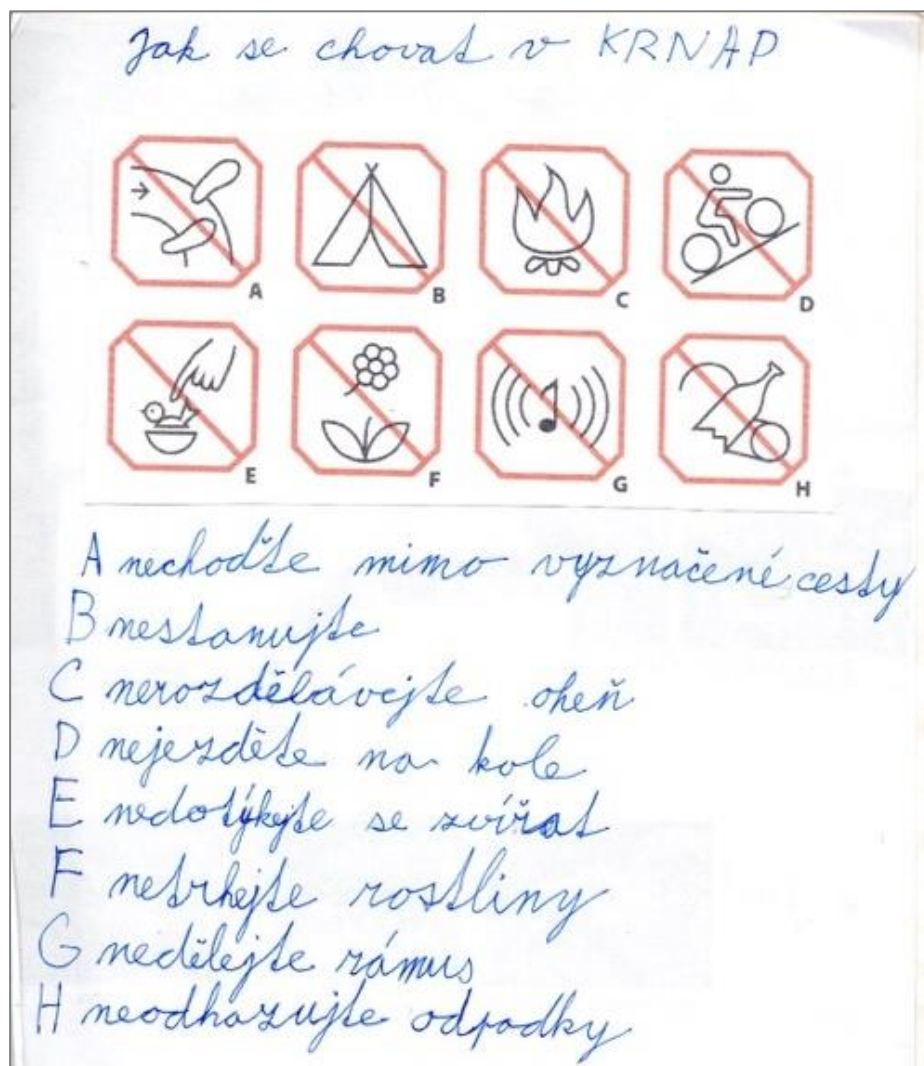 Jak se chovat v KRNAP
A B C D
E F G H
A nechoďte mimo vyznačené cesty
B nestanujte
C nerozdělávejte oheň
D nejezděte na kole
E nedotýkejte se zvířat
F netrhejte rostliny
G nedělejte rámus
H neodhazujte odpadky